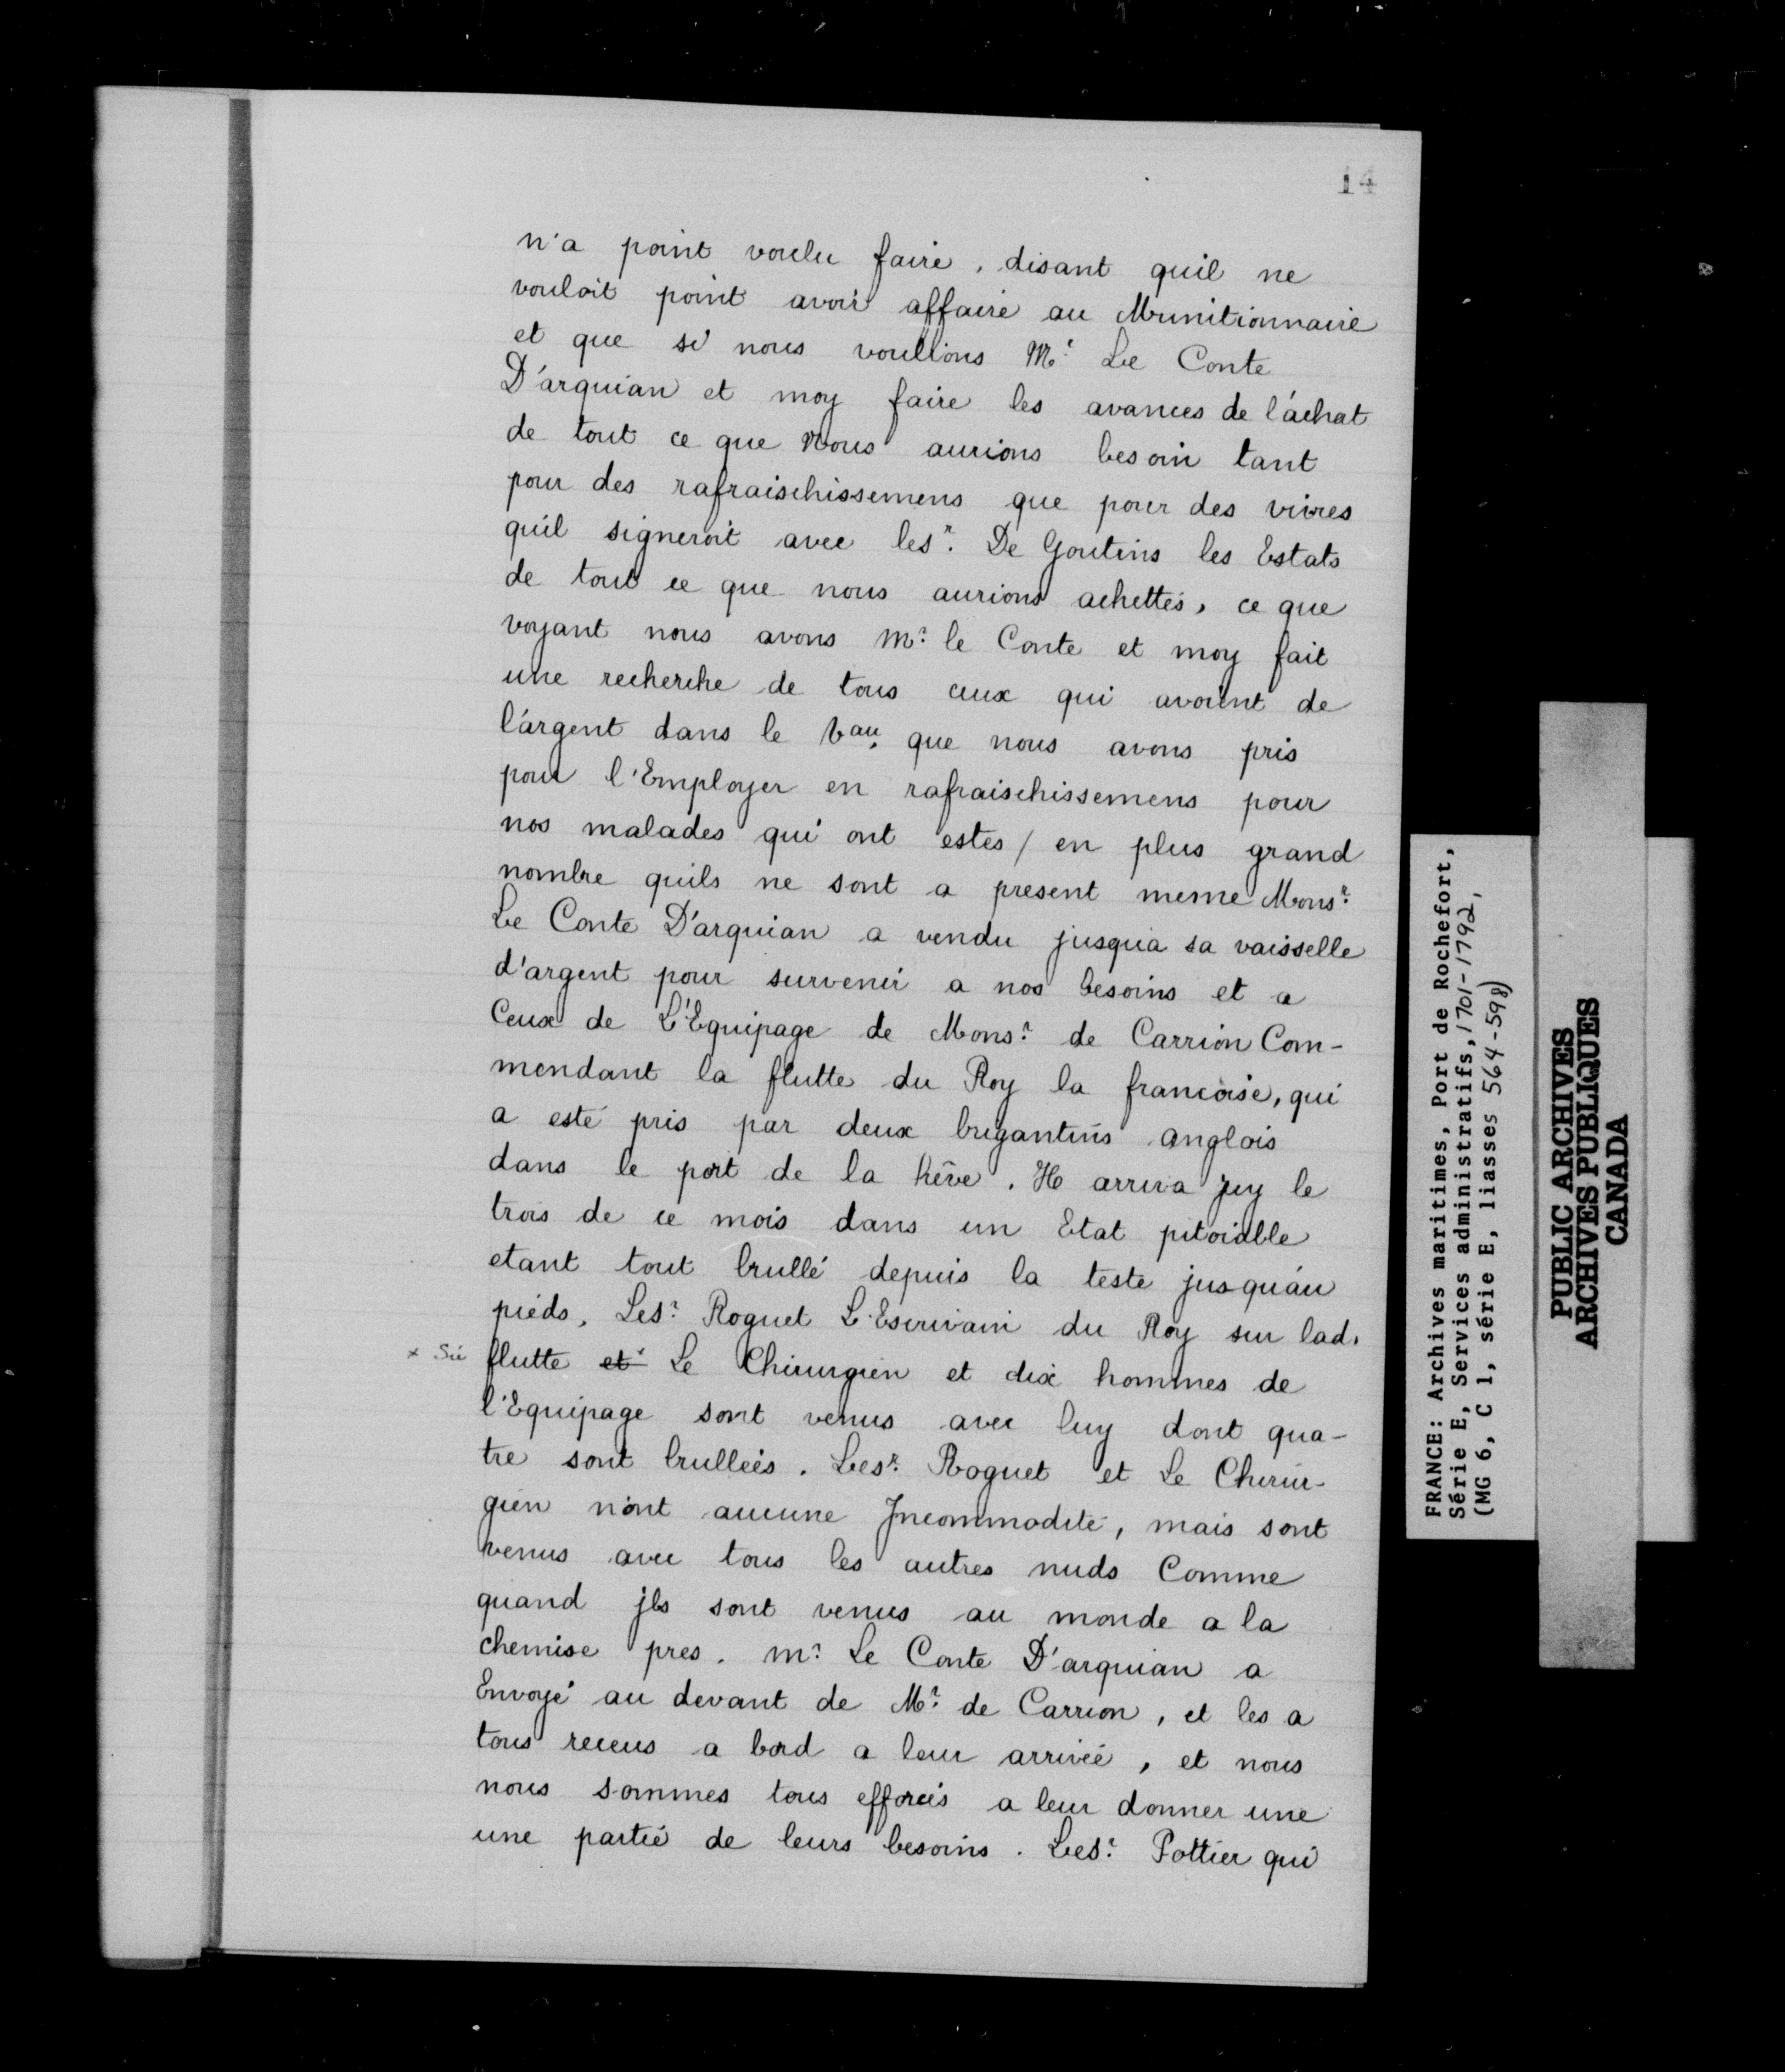 14
n'a point voulu faire, disant quil ne
vouloit point avoir affaire au Munitionnaire
et que si nous voullions Mr. Le Conte
D'arquian et moy faire les avances de l'achat
de tout ce que Nous aurions besoin tant
pour des rafraischissemens que pour des vivres
qu'il signeroit avec les r. De Goutins les Estats
de tout ce que nous aurions achettés, ce que
voyant nous avons Mr. le Conte et moy fait
une recherche de tous ceux qui avoient de
l'argent dans le bau. que nous avons pris
pour l'Employer en rafraischissemens pour
nos malades qui ont estés / en plus grand
nombre quils ne sont a present meme Monsr.
Le Conte D'arquian a vendu jusqua sa vaisselle
d'argent pour survenir a nos besoins et a
Ceux de L'Equipage de Monsr. de Carrion Com-
mendant la flutte du Roy la francoise, qui
a esté pris par deux brigantins anglois
dans le port de la hêve. Il arriva jcy le
trois de ce mois dans un Etat pitoiable
etant tout brullé depuis la teste jusqu'au
pieds, Lesr. Roquet L'Escrivain du Roy sur lad.
x Sic flutte et Le Chirurgien et dix hommes de
l'Equipage sont venus avec luy dont qua-
tre sont brullées. Lesr. Roquet et Le Chirur-
gien n'ont aucune Jncommodité, mais sont
venus avec tous les autres nuds Comme
quand jls sont venus au monde a la
chemise pres. Mr. Le Conte D'arquian a
Envoyé au devant de Mr. de Carrion, et les a
tous receus a bord a leur arrivée, et nous
nous sommes tous efforcés a leur donner une
une partie de leurs besoins. Lesr. Pottier qui
FRANCE: Archives maritimes, Port de Rochefort,
Série E, Services administratifs, 1701-1792,
(MG 6, C 1, série E, liasses 564-598)
PUBLIC ARCHIVES
ARCHIVES PUBLIQUES
CANADA